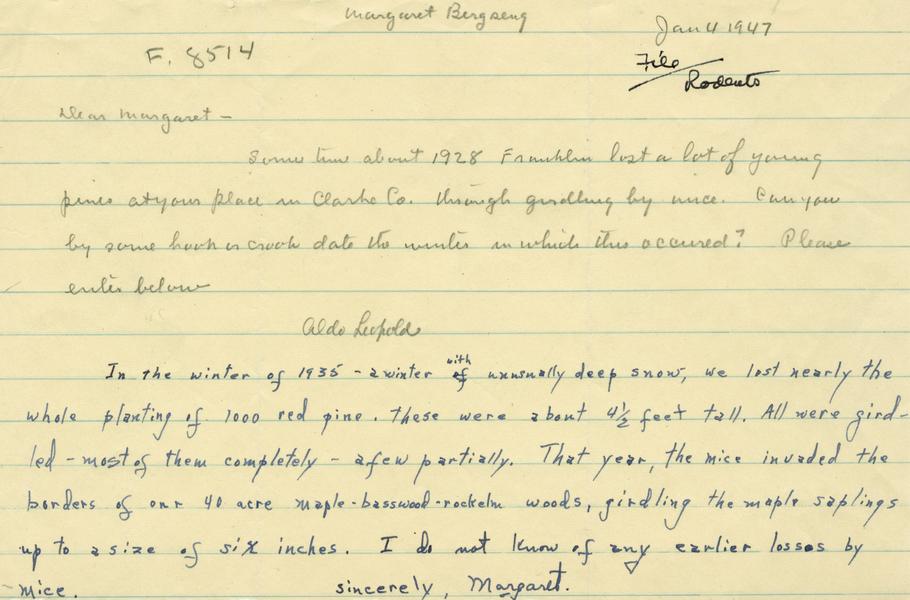 Margaret Bergseng
Jan 4 1947
F. 8514
File
Rodents
Dear Margaret -
Some time about 1928 Franklin lost a lot of young
pines at your place in Clarke Co. through girdling by mice. Can you
by some hook or crook date the winter in which this occured? Please
enter below
Aldo Leopold
In the winter of 1935 - a winter with of unusually deep snow, we lost nearly the
whole planting of 1000 red pine. These were about 4½ feet tall. All were gird-
led - most of them completely - a few partially. That year, the mice invaded the
borders of our 40 acre maple-basswood-rockelm woods, girdling the maple saplings
up to a size of six inches. I do not know of any earlier losses by
mice. sincerely, Margaret.